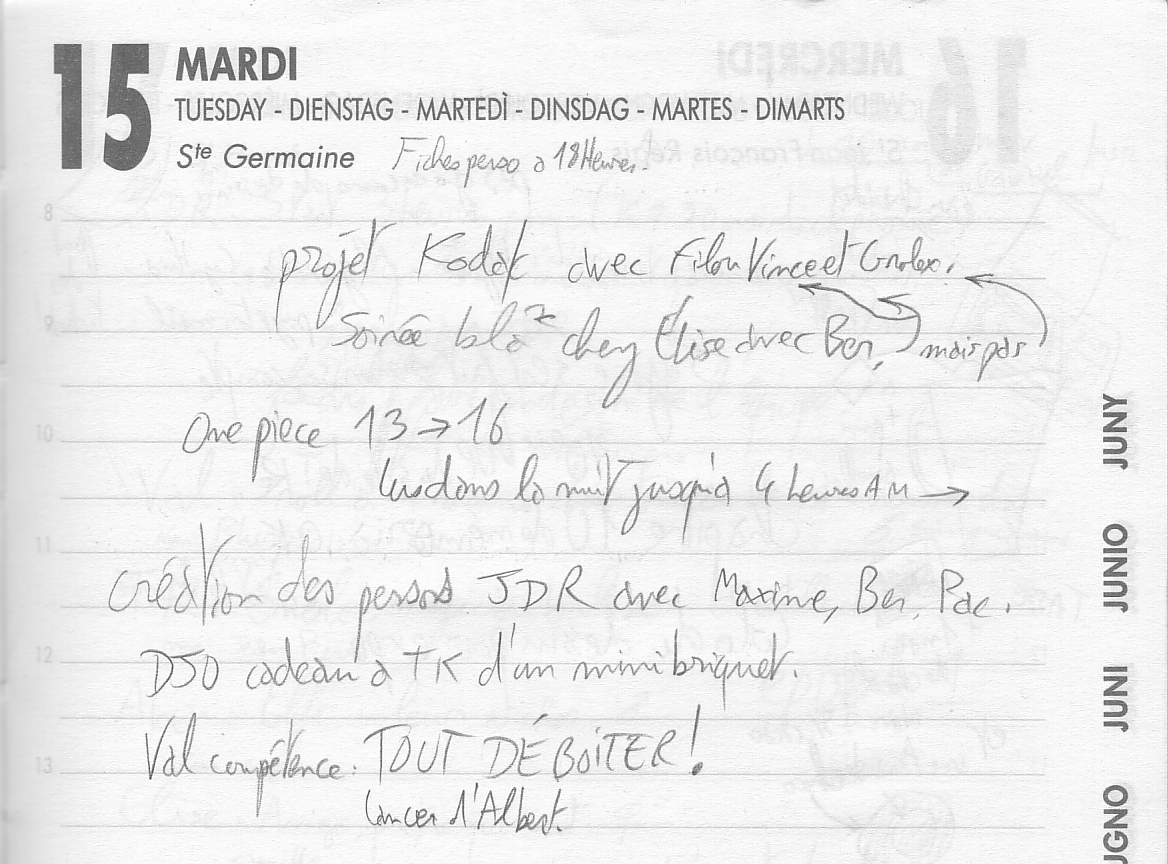 15 MARDI
TUESDAY - DIENSTAG - MARTEDÌ - DINSDAG - MARTES - DIMARTS
Ste Germaine Fiches perso à 18 Heures.
8
projet Kodak avec Filou Vince et Grolex.
9
Soirée bla chez Élise avec Ben, mais pas
10
One piece 13 → 16
Lus dans la nuit jusqu'à 4 heures AM →
11
création des persos JDR avec Maxime, Ben, Pac.
12
D50 cadeau à TK d'un mini briquet.
13
Val compétence : TOUT DÉBOITER !
Lancer d'Albert.
JUNY
JUNIO
JUNI
UGNO